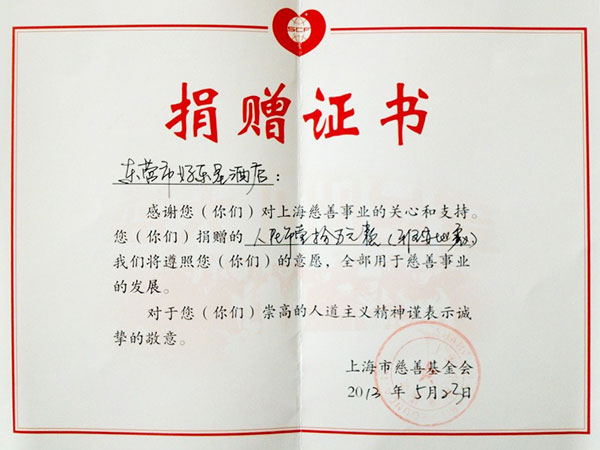 SCF
捐赠证书
东营市好东星酒店：
感谢您（你们）对上海慈善事业的关心和支持。
您（你们）捐赠的 人民币壹拾万元整
我们将遵照您（你们）的意愿，全部用于慈善事业
的发展。
对于您（你们）崇高的人道主义精神谨表示诚
挚的敬意。
上海市慈善基金会
2013 年 5月23日